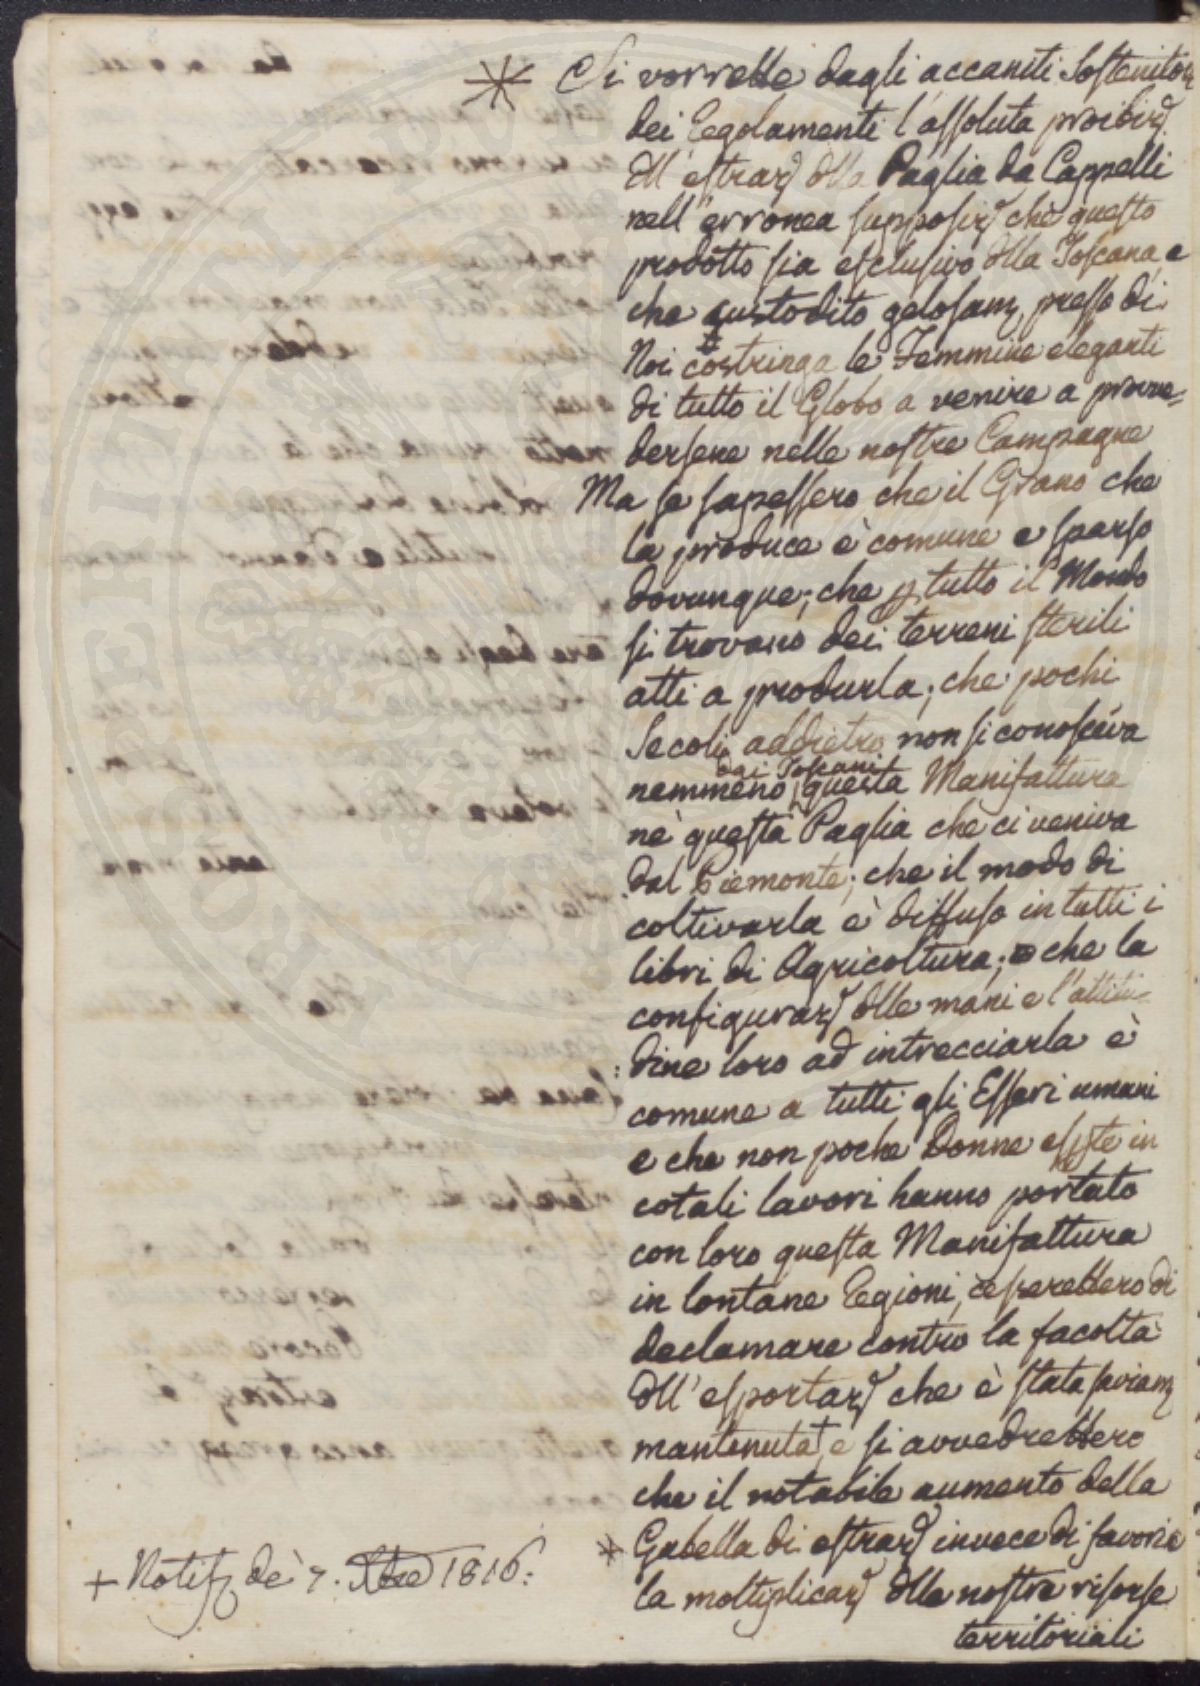 * Si vorrebbe dagli accaniti Sostenitori
dei Regolamenti l'assoluta proibiz.e
dll' estraz.e dlla Paglia da Cappelli
nell' erronea supposiz.e che questo
prodotto sia esclusivo dlla Toscana, e
che custodito gelosam.e presso di
Noi costringa le Femmine eleganti
di tutto il Globo a venire a provve=
dersene nelle nostre Campagne
Ma se sapessero che il Grano che
la produce è comune e sparso
dovunque; che p tutto il Mondo
si trovano dei terreni sterili
atti a produrla; che pochi
Secoli addietro non si conosceva
dai Toscani
nemmeno questa Manifattura
nè questa Paglia che ci veniva
dal Piemonte; che il modo di
coltivarla è diffuso in tutti i
libri di Agricoltura; che la
configuraz.e dlle mani e l'attitu=
dine loro ad intrecciarla è
comune a tutti gli Esseri umani
e che non poche Donne in
cotali lavori hanno portato
con loro questa Manifattura
in lontane Regioni, cesserebbero di
declamare contro la facoltà
dll' esportaz.e che è stata saviam.e
mantenuta + e si avvedrebbero
che il notabile aumento della
* Gabella di estraz.e invece di favorire
la moltiplicaz.e dlle nostre risorse
territoriali
+ Notif.e de' 7. 1816: